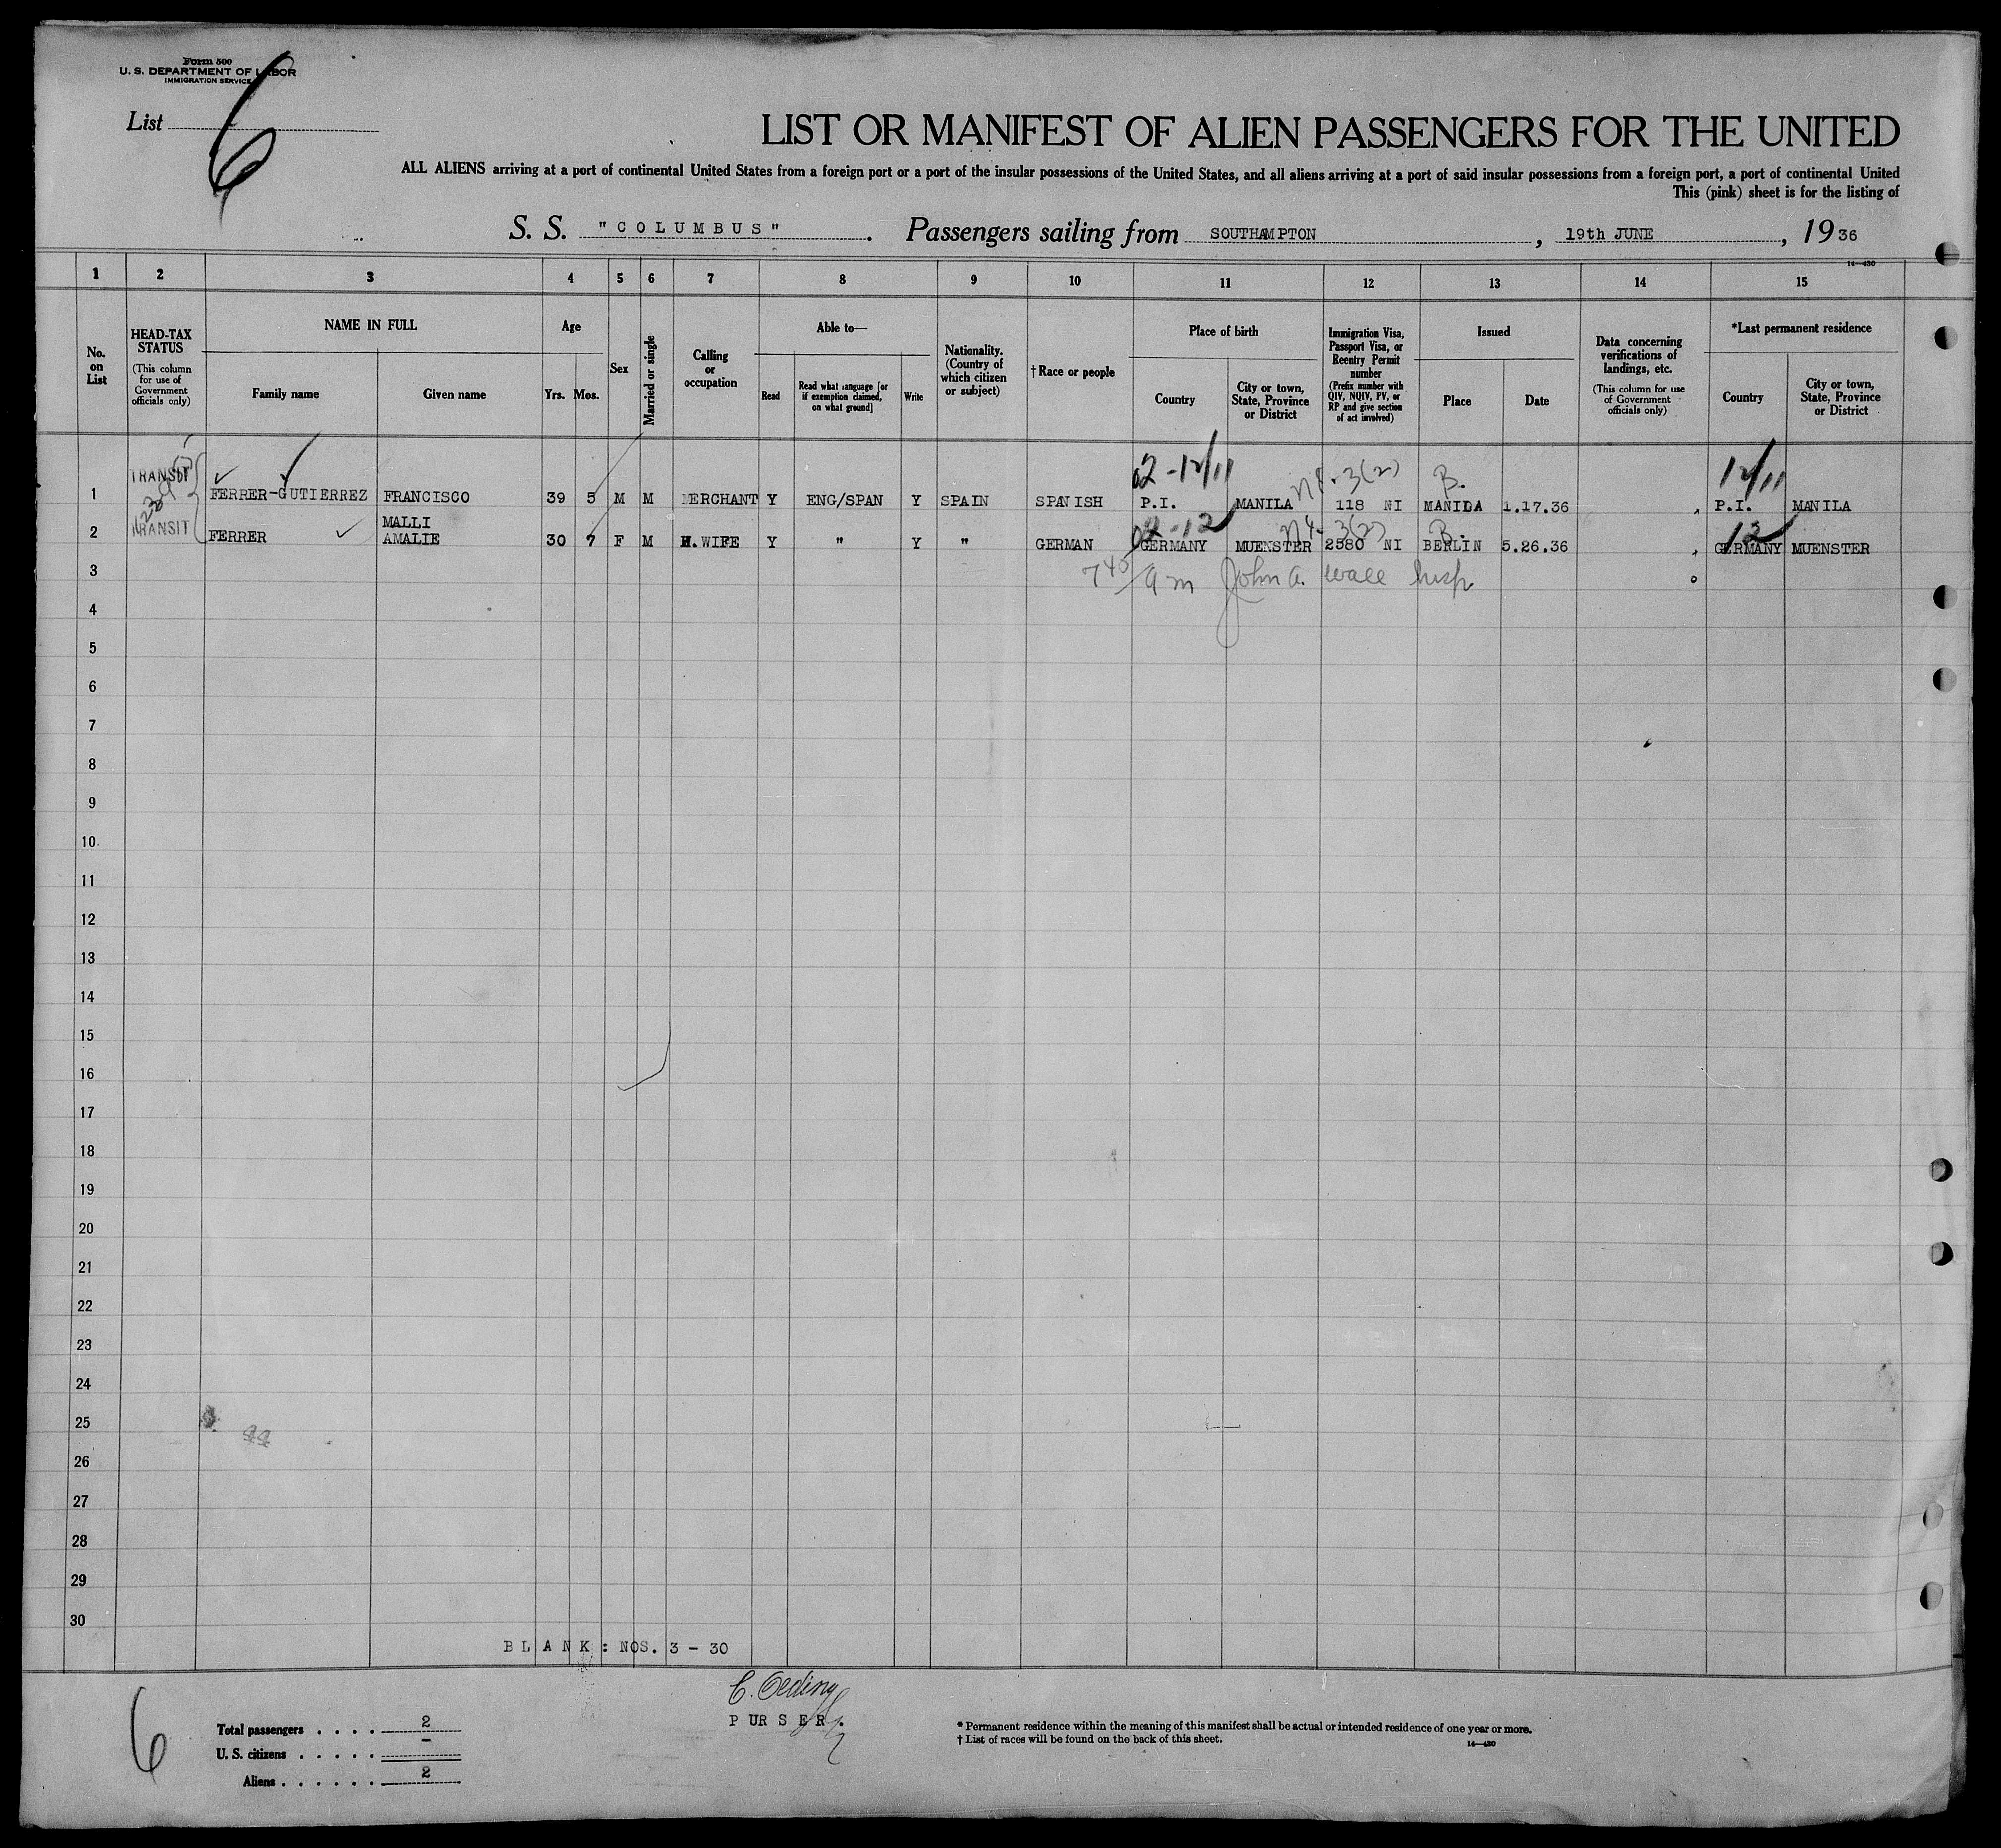 Form 500
U. S. DEPARTMENT OF LABOR
IMMIGRATION SERVICE
List 6
LIST OR MANIFEST OF ALIEN PASSENGERS FOR THE UNITED
ALL ALIENS arriving at a port of continental United States from a foreign port or a port of the insular possessions of the United States, and all aliens arriving at a port of said insular possessions from a foreign port, a port of continental United
This (pink) sheet is for the listing of
S. S. "COLUMBUS". Passengers sailing from SOUTHAMPTON, 19th JUNE, 1936
14—430
1 2 3 4 5 6 7 8 9 10 11 12 13 14 15
No. on List
HEAD-TAX STATUS (This column for use of Government officials only)
NAME IN FULL
Family name Given name
Age
Yrs. Mos.
Sex
Married or single
Calling or occupation
Able to—
Read Read what language [or if exemption claimed, on what ground] Write
Nationality. (Country of which citizen or subject)
†Race or people
Place of birth
Country City or town, State, Province or District
Immigration Visa, Passport Visa, or Reentry Permit number (Prefix number with QIV, NQIV, PV, or RP and give section of act involved)
Issued
Place Date
Data concerning verifications of landings, etc. (This column for use of Government officials only)
*Last permanent residence
Country City or town, State, Province or District
02-12/11 3(2) B. 12/11
1 TRANSIT FERRER-GUTIERREZ FRANCISCO 39 5 M M MERCHANT Y ENG/SPAN Y SPAIN SPANISH P.I. MANILA 118 NI MANILA 1.17.36 P.I. MANILA
02-12 3(2) B. 12
2 TRANSIT FERRER MALLI AMALIE 30 7 F M H.WIFE Y " Y " GERMAN GERMANY MUENSTER 2580 NI BERLIN 5.26.36 GERMANY MUENSTER
3 745 am John A. Wall Insp
4
5
6
7
8
9
10
11
12
13
14
15
16
17
18
19
20
21
22
23
24
25
44
26
27
28
29
30
BLANK: NOS. 3 - 30
6
C. Oeding
PURSER.
Total passengers . . . . 2
U. S. citizens . . . . . -
Aliens . . . . . . 2
* Permanent residence within the meaning of this manifest shall be actual or intended residence of one year or more.
† List of races will be found on the back of this sheet.
14—430